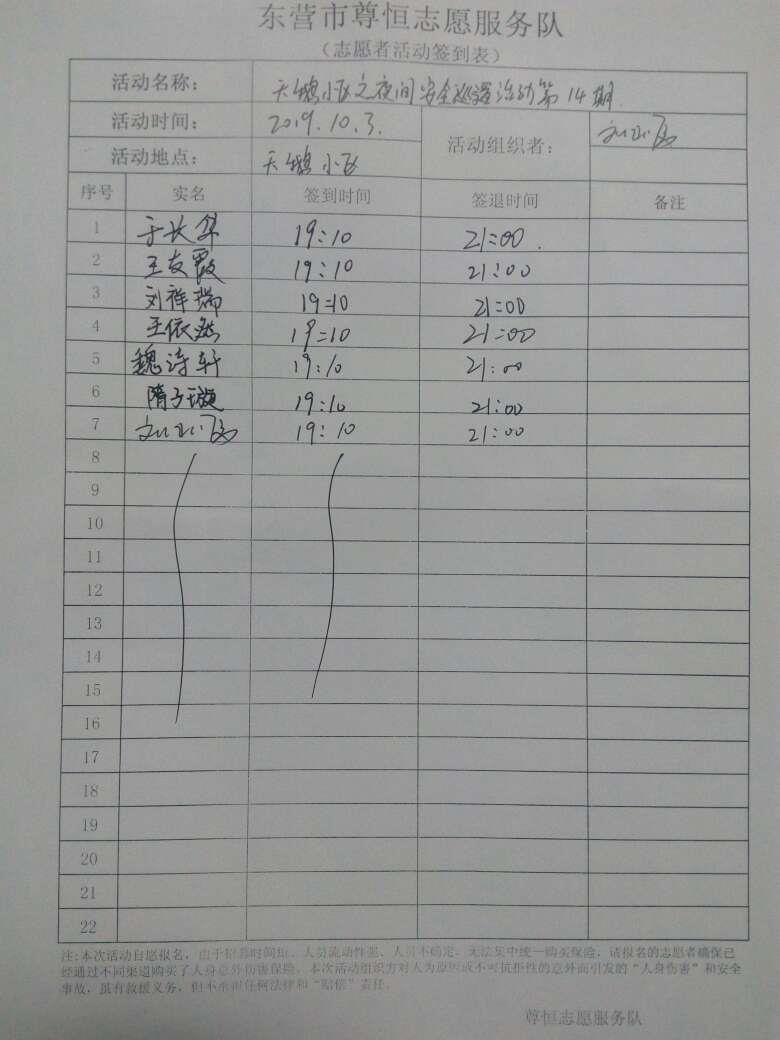 东营市尊恒志愿服务队
(志愿者活动签到表)
活动名称: 天鹅小区之夜间安全巡逻活动第14期
活动时间: 2019.10.3. 活动组织者:
活动地点: 天鹅小区
序号 实名 签到时间 签退时间 备注
1 于长华 19:10 21:00.
2 王友霞 19:10 21:00
3 刘祥瑞 19:10 21:00
4 王依然 19:10 21:00
5 魏诗轩 19:10 21:00
6 隋子璇 19:10 21:00
7 19:10 21:00
8
9
10
11
12
13
14
15
16
17
18
19
20
21
22
注:本次活动自愿报名,由于招募时间短、人员流动性强、人员不确定,无法集中统一购买保险,请报名的志愿者确保已
经通过不同渠道购买了人身意外伤害保险。本次活动组织方对人为原因或不可抗拒性的意外而引发的“人身伤害”和安全
事故,虽有救援义务,但不承担任何法律和“赔偿”责任。
尊恒志愿服务队